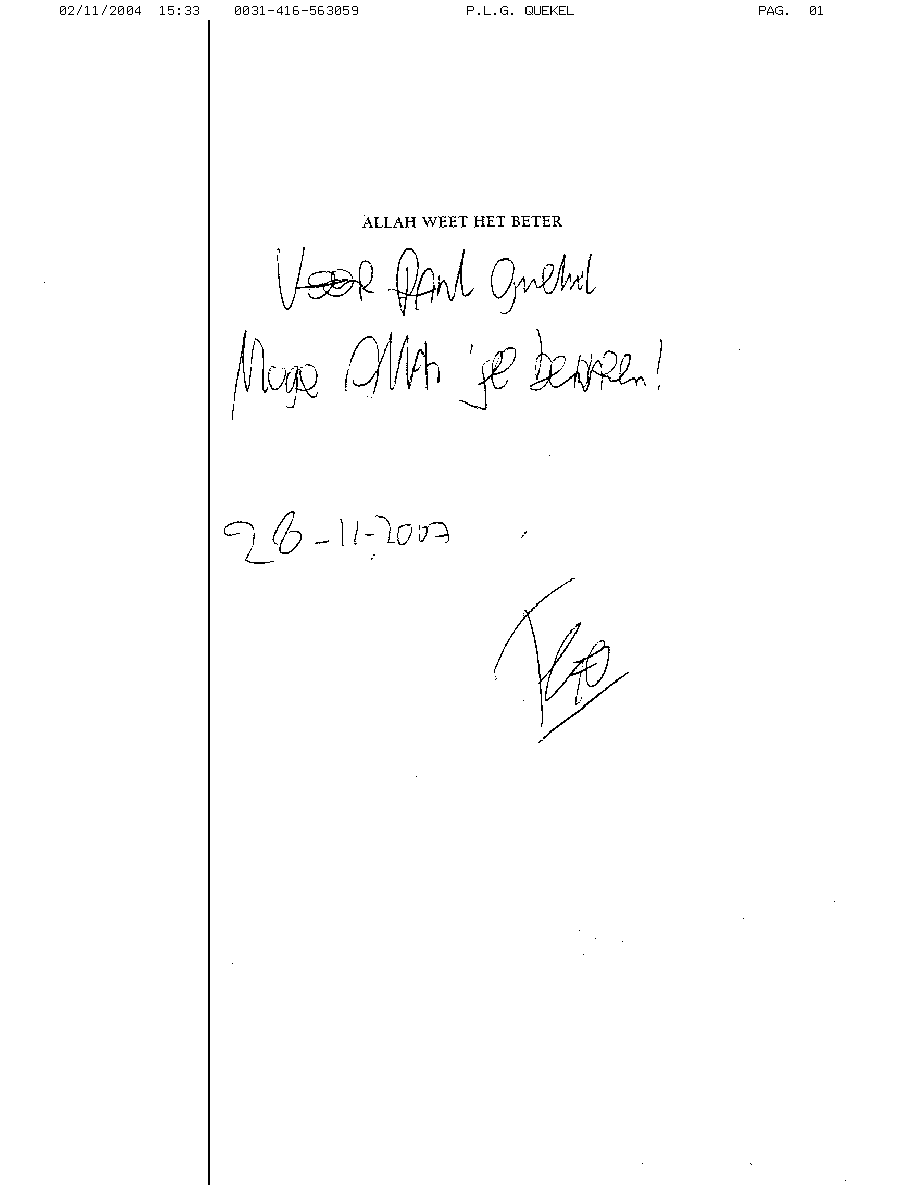 02/11/2004 15:33 0031-416-563059 P.L.G. QUEKEL PAG. 01
ALLAH WEET HET BETER
Voor Paul Quekel
Moge Allah je bewaren!
28-11-2003
Theo